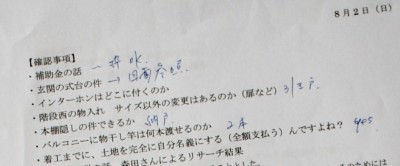 8月2日（日）
【確認事項】
・補助金の話
・玄関の式台の件 → 図面参照
・インターホンはどこに付くのか
・階段西の物入れ サイズ以外の変更はあるのか（扉など） 引き戸
・本棚隠しの件できるか 納戸
・バルコニーに物干し竿は何本渡せるのか 2本
・着工までに、土地を完全に自分名義にする（全額支払う）んですよね？ yes
森田さんによるリサーチ結果